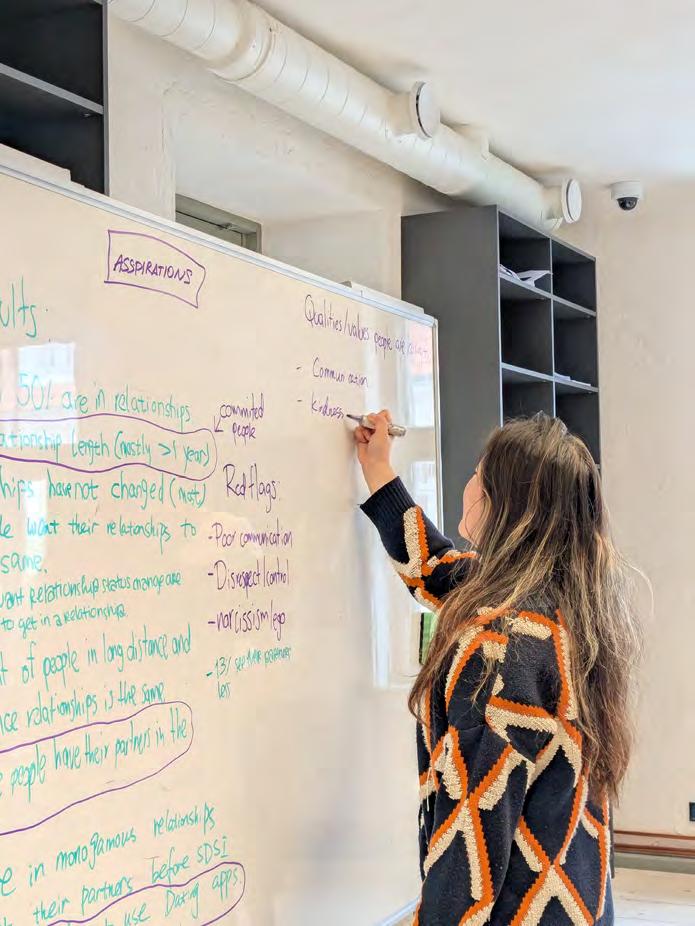 ASSPIRATIONS
ults:
50% are in relationships
ationship length (mostly >1 year)
ships have not changed (most)
le want their relationships to
same.
want relationship status change are
to get in a relationship.
t of people in long distance and
nce relationships is the same
e people have their partners in the
e in monogamous relationships
their partners before SDSI
to use Dating apps.
commited
people
Red flags:
- Poor communication
- Disrespect/control
- narcissism/ego
- 13% see their partners
less
Qualities/values people are
- Communication
- kindness